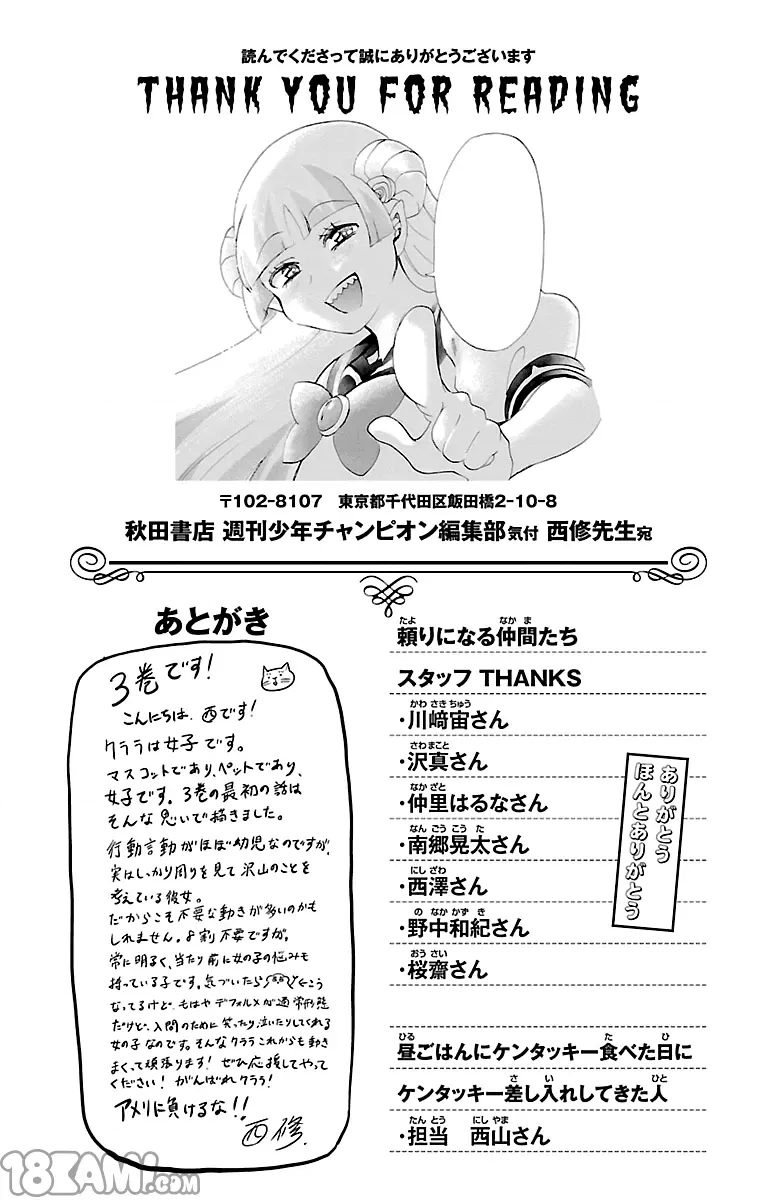 読んでくださって誠にありがとうございます
THANK YOU FOR READING
〒102-8107　東京都千代田区飯田橋2-10-8
秋田書店 週刊少年チャンピオン編集部気付 西修先生宛
あとがき
3巻です!
こんにちは、西です!
クララは女子です。
マスコットであり、ペットであり、
女子です。3巻の最初の話は
そんな思いで描きました。
行動言動がほぼ幼児なのですが、
実はしっかり周りを見て沢山のことを
考えている彼女。
だからこそ不要な動きが多いのかも
しれません。8割不要ですが。
常に明るく、当たり前に女の子の悩みも
持っている子です。気づいたら←こう
なってるけど、もはやデフォルメが通常形態
だけど、入間のために笑ったり泣いたりしてくれる
女の子なのです。そんなクララこれからも動き
まくって頑張ります!ぜひ応援してやって
ください!がんばれクララ!
アメリに負けるな!!
西修.
頼りになる仲間たち
たよ なかま
スタッフ THANKS
・川﨑宙さん
かわさきちゅう
・沢真さん
さわまこと
・仲里はるなさん
なかざと
・南郷晃太さん
なんごうこうた
・西澤さん
にしざわ
・野中和紀さん
のなかかずき
・桜齋さん
おうさい
ありがとう
ほんとありがとう
昼ごはんにケンタッキー食べた日に
ひる た ひ
ケンタッキー差し入れしてきた人
さ い ひと
・担当　西山さん
たんとう にしやま
18KAMI.COM